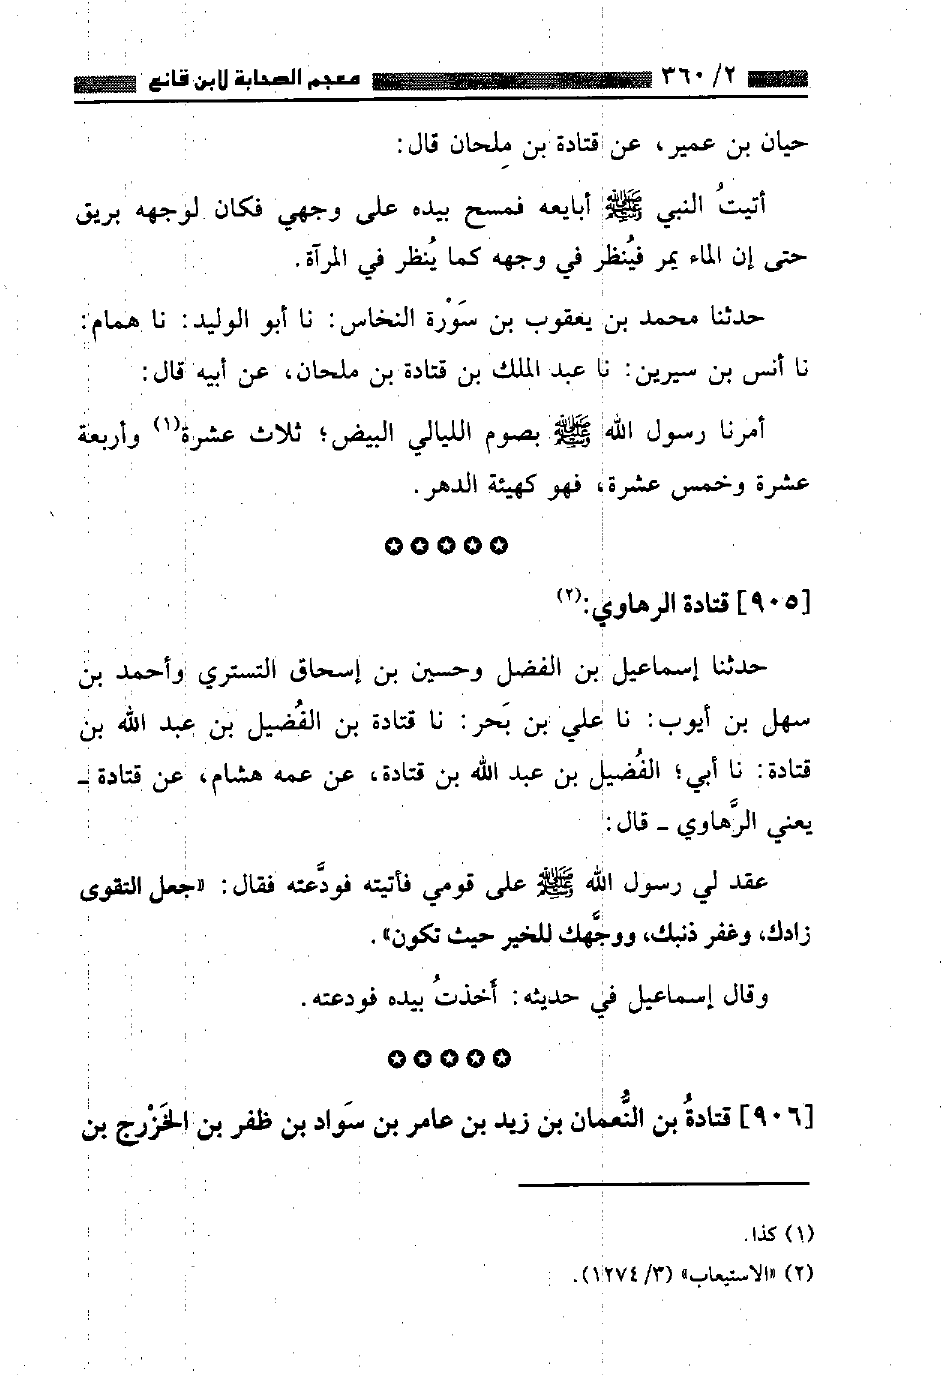 ٣٦٠/٢ معجم الصحابة لابن قانع
حيان بن عمير، عن قتادة بن ملحان قال:
أتيتُ النبي ﷺ أبايعه فمسح بيده على وجهي فكان لوجهه بريق
حتى إن الماء يمر فيُنظر في وجهه كما يُنظر في المرآة.
حدثنا محمد بن يعقوب بن سَوْرة النخاس: نا أبو الوليد: نا همام:
نا أنس بن سيرين: نا عبد الملك بن قتادة بن ملحان، عن أبيه قال:
أمرنا رسول الله ﷺ بصوم الليالي البيض؛ ثلاث عشرة(١) وأربعة
عشرة وخمس عشرة، فهو كهيئة الدهر.
✪✪✪✪✪
[٩٠٥] قتادة الرهاوي:(٢)
حدثنا إسماعيل بن الفضل وحسين بن إسحاق التستري وأحمد بن
سهل بن أيوب: نا علي بن بَحر: نا قتادة بن الفُضيل بن عبد الله بن
قتادة: نا أبي؛ الفُضيل بن عبد الله بن قتادة، عن عمه هشام، عن قتادة ـ
يعني الرَّهاوي ـ قال:
عقد لي رسول الله ﷺ على قومي فأتيته فودَّعته فقال: «جعل التقوى
زادك، وغفر ذنبك، ووجَّهك للخير حيث تكون».
وقال إسماعيل في حديثه: أَخذتُ بيده فودعته.
✪✪✪✪✪
[٩٠٦] قتادةُ بن النُّعمان بن زيد بن عامر بن سَواد بن ظفر بن الخَزْرج بن
(١) كذا.
(٢) «الاستيعاب» (٣/ ١٢٧٤).